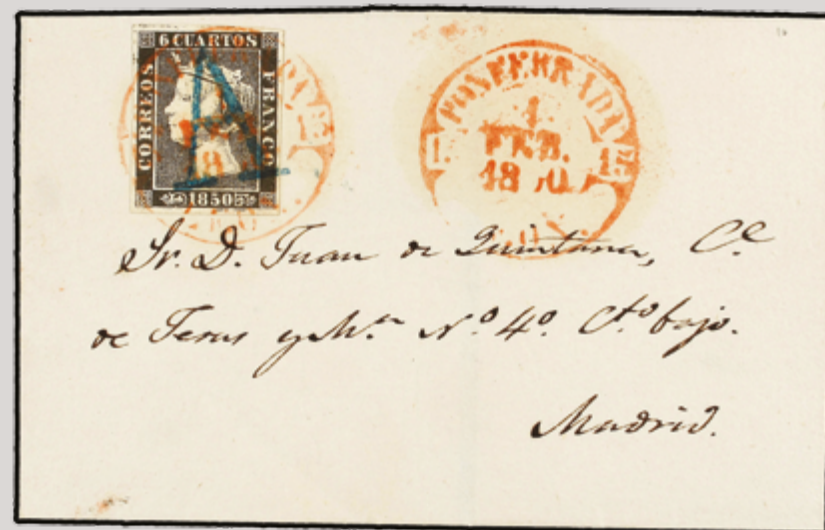 6 CUARTOS
CORREOS
FRANCO
1850
A
PONFERRADA
1
FEB.
1850
Sr. D. Juan de Quintana, Ce
de Jesus y Ma. No. 4o. Cto. bajo.
Madrid.